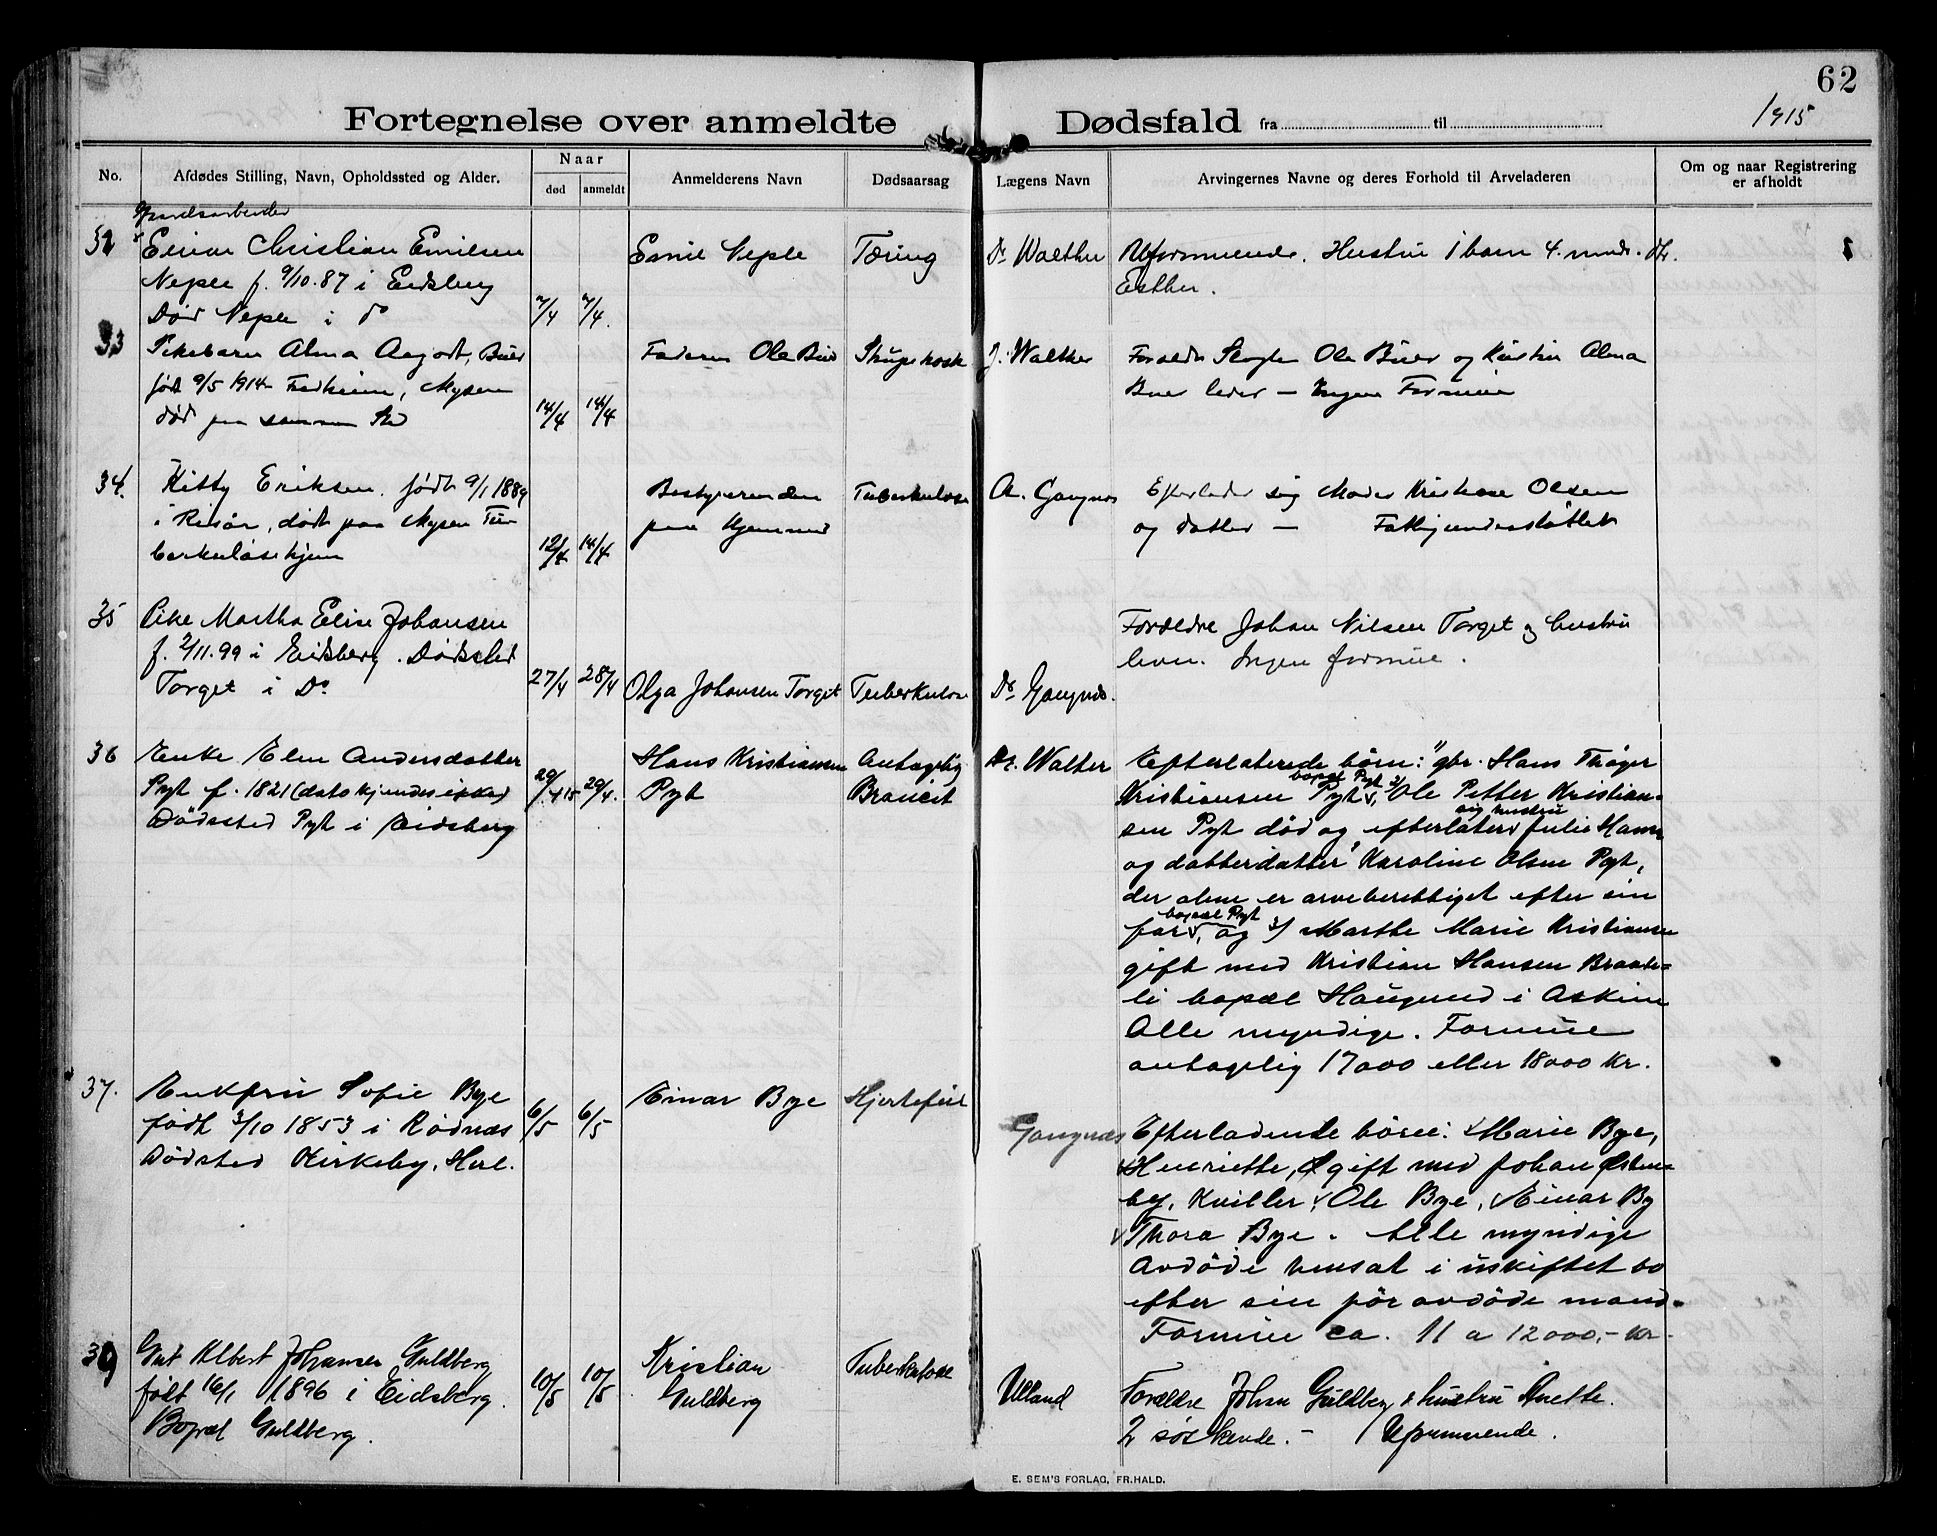 62
Fortegnelse over anmeldte Dødsfald fra til
1915
No. Afdødes Stilling, Navn, Opholdssted og Alder. Naar død anmeldt Anmelderens Navn Dødsaarsag Lægens Navn Arvingernes Navne og deres Forhold til Arveladeren Om og naar Registrering er afholdt
Gaardsarbeider
32 Einar Christian Emilsen
Neple f. 9/10.87 i Eidsberg
Død Neple i do
7/4 7/4.
Emil Neple
Tæring
Dr Walther
Uformuende. Hustru 1 barn 4. mndr.
Esther.
33 Pikebarn Alma Buer
født 9/5 1914 Fredheim, Mysen
død paa samme Sted
14/4 14/4
Faderen Ole Buer
J. Walther
Forældre Ole Buer og Hustru Alma
Buer lever — Ingen Formue
34. Kitty Eriksen. født 9/1 1889
i Risør, død paa Mysen Tu-
berkulosehjem
12/4 14/4
Bestyrerinden
paa Hjemmet
Tuberkulose
A. Gangnæs
Efterlader sig Moder Olsen
og datter — Fattigunderstøttet
35 Pike Martha Elise Johansen
f. 2/11.99 i Eidsberg. Dødssted
Torget i Do
27/4 28/4
Olga Johansen Torget
Tuberkulose
Dr Gangnæs.
Forældre Johan Nilsen Torget og hustru
lever. Ingen formue.
36 Enke Elen Andersdatter
Pyt f. 1821 (dato kjendes ikke)
Dødssted Pyt i Eidsberg
29/4 15 29/4.
Hans Kristiansen
Pyt
Antagelig
Dr. Walter
Efterlaterede børn: 1) gbr. Hans Thøger
Kristiansen bopæl Pyt, 2) Ole Petter Kristian-
sen Pyt død og efterlater sig hustru Julie Hansen
og datterdatter Karoline Olsen Pyt,
der alene er arveberettiget efter sin
far, bopæl Pyt, og 3) Marthe Marie Kristiansen
gift med Kristian Hansen Braate-
li bopæl Haugrud i Askim
Alle myndige. Formue
antagelig 17000 eller 18000 Kr.
37. Enkefru Sofie Bye
født 3/10 1853 i Rødnæs
Dødsted Kirkeby, Herl.
6/5 6/5
Einar Bye
Hjertefeil
Gangnæs
Efterladende børn: Marie Bye,
Henriette, gift med Johan Østen-
by, Kviller, Ole Bye, Einar By
Thora Bye. Alle myndige
Avdøde hensat i uskiftet bo
efter sin før avdøde mand.
Formue ca. 11 a 12000,- kr.
39 Gut Albert Johansen Guldberg
født 16/1 1896 i Eidsberg.
Bopæl Guldberg.
10/5 10/5
Kristian
Guldberg
Tuberkulose
Ulland
Forældre Johan Guldberg & hustru Anette.
2 søskende. - Uformuende.
E. SEM'S FORLAG, FR.HALD.